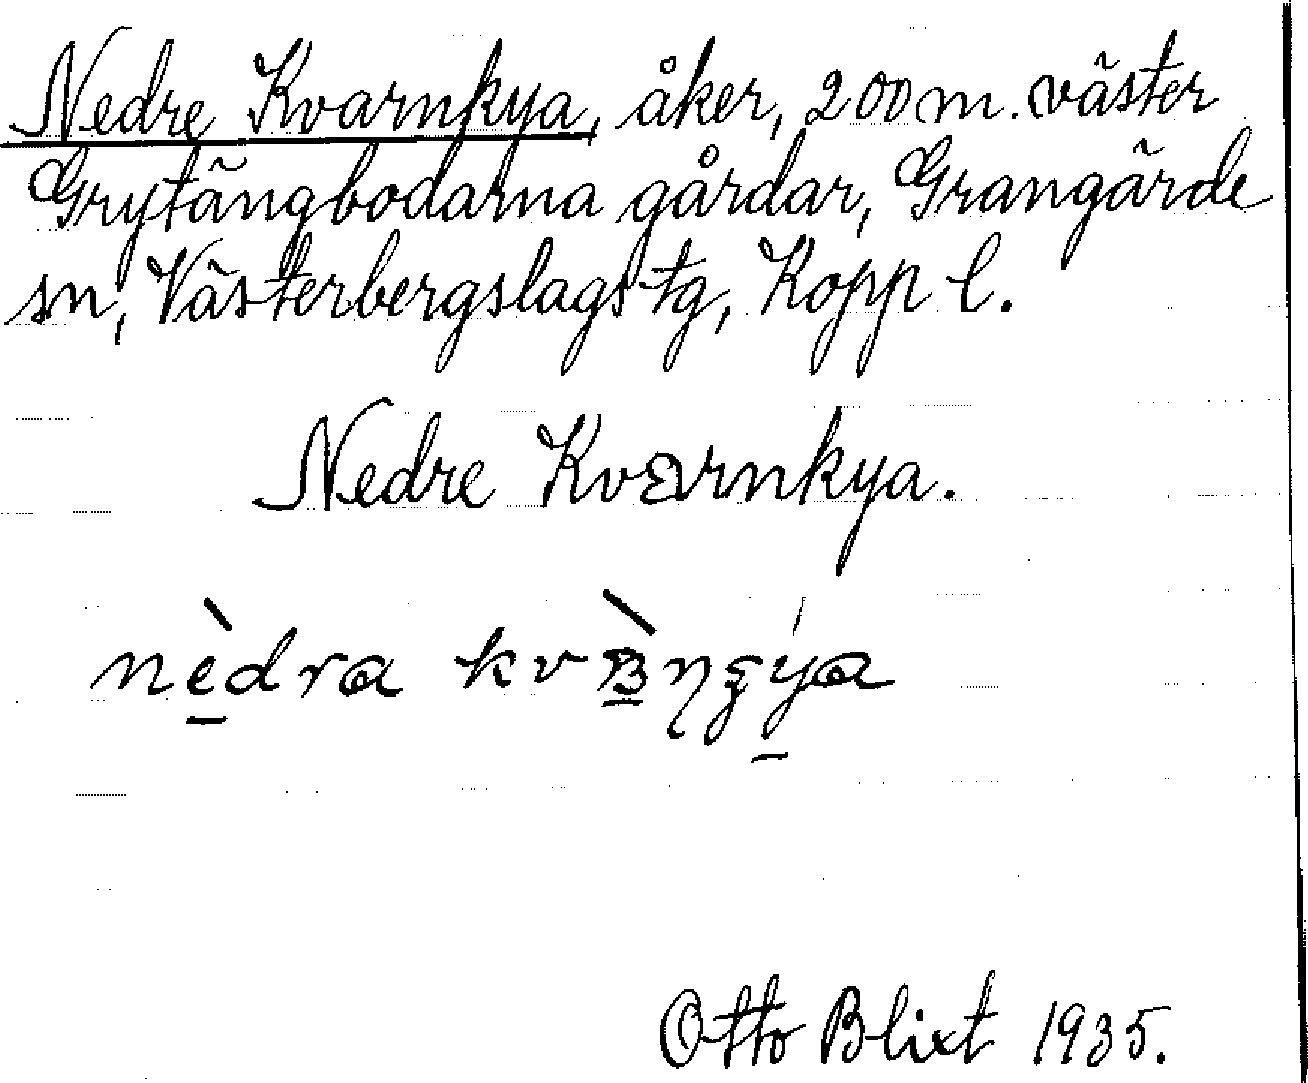 Nedre Kvarnkya, åker, 200 m. väster
Grytängbodarna gårdar, Grangärde
sn, Västerbergslags tg, Kopp l.
Nedre Kvarnkya.
nèdra
Otto Blixt 1935.